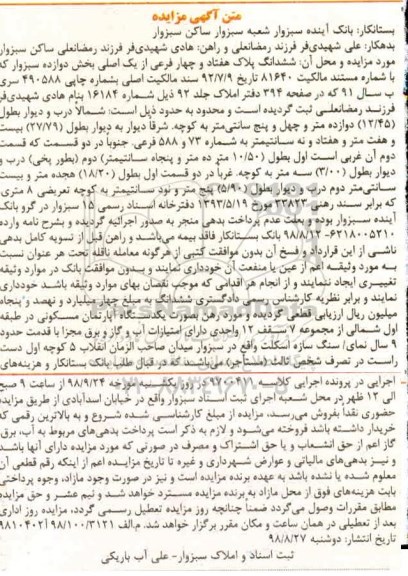 متن آگهی مزایده
بستانکار: بانک آینده سبزوار شعبه سبزوار ساکن سبزوار
بدهکار: علی شهیدی‌فر فرزند رمضانعلی و راهن: هادی شهیدی‌فر فرزند رمضانعلی ساکن سبزوار
مورد مزایده و محل آن: ششدانگ پلاک هفتاد و چهار فرعی از یک اصلی بخش دوازده سبزوار که
با شماره مستند مالکیت ۸۱۶۴۰ تاریخ ۹۲/۷/۹ سند مالکیت اصلی بشماره چاپی ۴۹۰۵۸۸ سری
ب سال ۹۱ که در صفحه ۳۹۴ دفتر املاک جلد ۹۲ ذیل شماره ۱۶۱۸۴ بنام هادی شهیدی‌فر
فرزند رمضانعلی ثبت گردیده است و محدود به حدود ذیل است: شمالاً درب و دیوار بطول
(۱۲/۴۵) دوازده متر و چهل و پنج سانتی‌متر به کوچه. شرقاً دیوار به دیوار بطول (۲۷/۷۹) بیست
و هفت متر و هفتاد و نه سانتیمتر به شماره ۷۳ و ۵۸۸ فرعی. جنوباً در دو قسمت که قسمت
دوم آن غربی است اول بطول (۱۰/۵۰) متر ده متر و پنجاه سانتیمتر) دوم (بطور پخی) درب و
دیوار بطول (۳/۰۰) سه متر به کوچه. غرباً در دو قسمت اول بطول (۱۸/۲۰) هجده متر و بیست
سانتی‌متر دوم درب و دیوار بطول (۵/۹۰) پنج متر و نود سانتیمتر به کوچه تعریضی ۸ متری
که برابر سند رهنی ۲۳۸۲۳ مورخ ۱۳۹۳/۵/۱۹ دفترخانه اسناد رسمی ۱۵ سبزوار در گرو بانک
آینده سبزوار بوده و بعلت عدم پرداخت بدهی منجر به صدور اجرائیه گردیده و بشرح نامه وارده
۶۲۱۸۰۰۵۲۱۰- ۹۸/۸/۱۲ بانک بستانکار فاقد بیمه می‌باشد و راهن قبل از تسویه کامل بدهی
ناشی از این قرارداد و فسخ آن بدون موافقت کتبی از هرگونه معامله ناقله تحت هر عنوان نسبت
به مورد وثیقه اعم از عین یا منفعت آن خودداری نمایند و بدون موافقت بانک در موارد وثیقه
تغییری ایجاد ننمایند و از انجام هر اقدامی که موجب نقصان بهای موارد وثیقه باشد خودداری
نمایند و برابر نظریه کارشناس رسمی دادگستری ششدانگ به مبلغ چهار میلیارد و نهصد و پنجاه
میلیون ریال ارزیابی قطعی گردیده و مورد بازدید بصورت یکدستگاه آپارتمان مسکونی در طبقه
اول شمالی از مجموعه ۷ سقف ۱۲ واحدی دارای امتیازات آب و گاز و برق مجزا با قدمت حدود
۹ سال نمای/ سنگ سازه اسکلت واقع در سبزوار میدان صاحب الزمان انقلاب ۵ کوچه اول دست
راست در تصرف شخص ثالث (مستأجر) می‌باشند که در قبال طلب بانک بستانکار و هزینه‌های
اجرایی در پرونده اجرایی کلاسه در روز یکشنبه مورخه ۹۸/۹/۲۴ از ساعت ۹ صبح
الی ۱۲ ظهر در محل شعبه اجرای ثبت اسناد سبزوار واقع در خیابان اسدآبادی از طریق مزایده
حضوری نقداً بفروش می‌رسد، مزایده از مبلغ کارشناسی شده شروع و به بالاترین رقمی که
خریدار داشته باشد فروخته می‌شود و لازم به ذکر است پرداخت بدهی‌های مربوط به آب، برق،
گاز اعم از حق انشعاب و یا حق اشتراک و مصرف در صورتی که مورد مزایده دارای آنها باشد
و نیز بدهی‌های مالیاتی و عوارض شهرداری و غیره تا تاریخ مزایده اعم از اینکه رقم قطعی آن
معلوم شده یا نشده باشد به عهده برنده مزایده است و نیز در صورت وجود مازاد، وجوه پرداختی
بابت هزینه‌های فوق از محل مازاد به برنده مزایده مسترد خواهد شد و نیم عشر و حق مزایده
مطابق مقررات وصول می‌گردد ضمناً چنانچه روز مزایده تعطیل رسمی گردد، مزایده روز اداری
بعد از تعطیلی در همان ساعت و مکان مقرر برگزار خواهد شد. م.الف ۹۸/۱۰۰/۳۱۲۱
تاریخ انتشار: دوشنبه ۹۸/۸/۲۷
ثبت اسناد و املاک سبزوار- علی آب باریکی